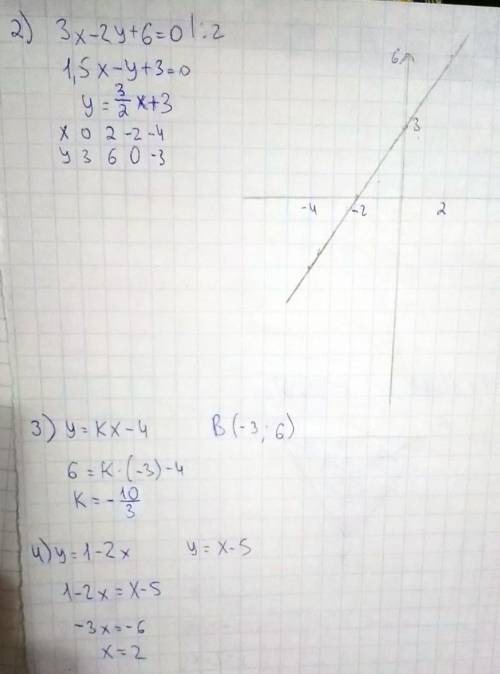 2) 3x-2y+6=0 |:2
1,5x-y+3=0
y=3/2x+3
x 0 2 -2 -4
y 3 6 0 -3
6
3
-4 -2 2
3) y=kx-4 B(-3; 6)
6=k·(-3)-4
k=-10/3
4) y=1-2x y=x-5
1-2x=x-5
-3x=-6
x=2